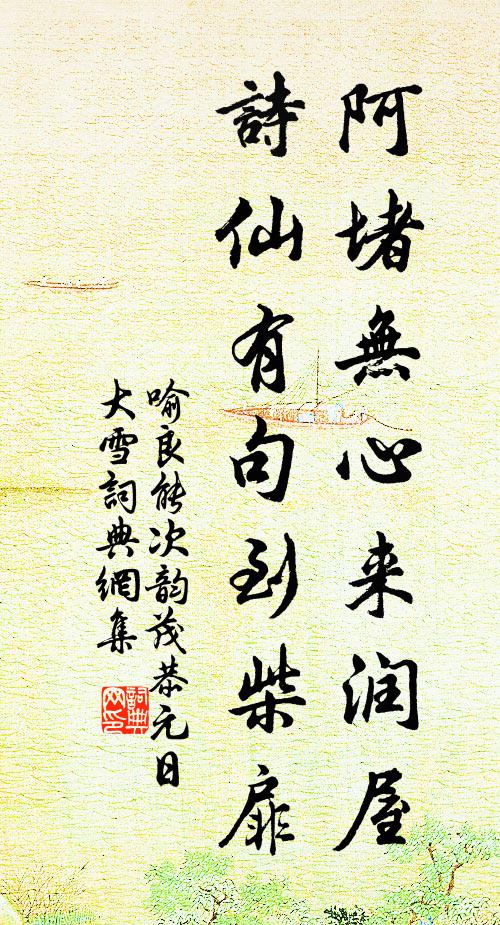 阿堵無心来润屋
詩仙有句到柴扉
喻良能次韵茂恭元日
大雪詞典網集
詞典
网印